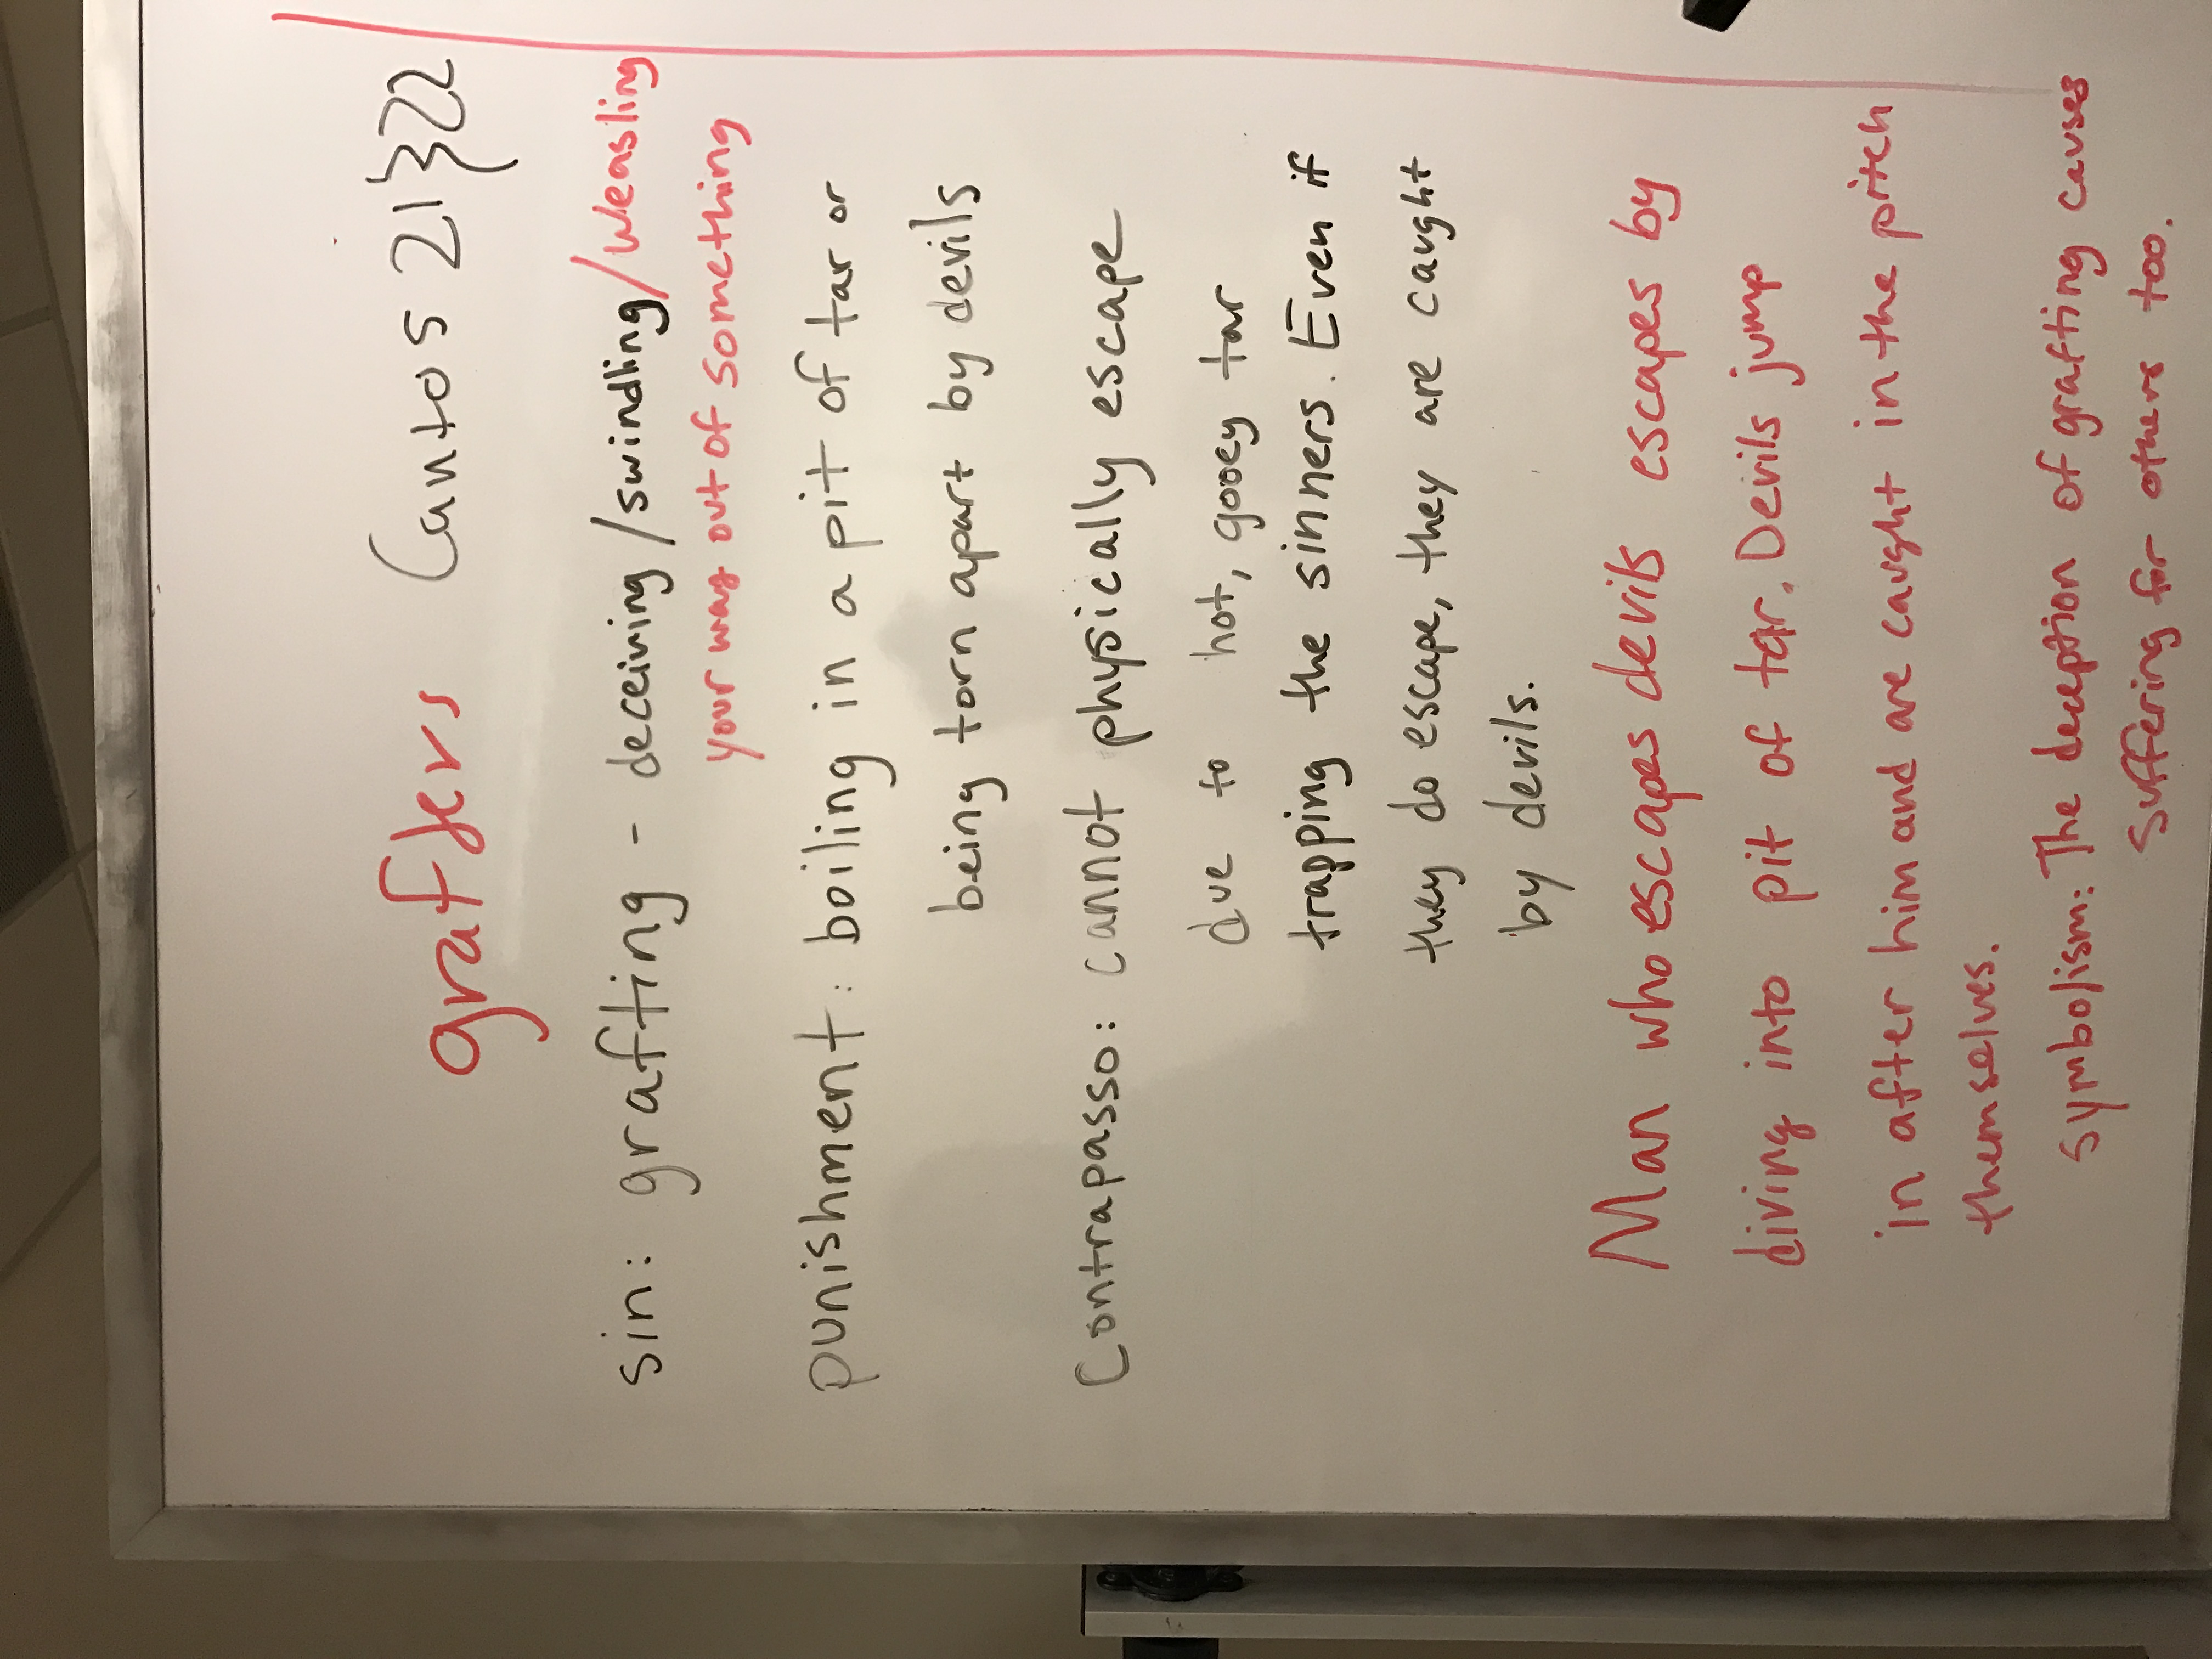 grafters Cantos 21 & 22
sin: grafting - deceiving/swindling/weasling
your way out of something
punishment: boiling in a pit of tar or
being torn apart by devils
Contrapasso: cannot physically escape
due to hot, gooey tar
trapping the sinners. Even if
they do escape, they are caught
by devils.
Man who escapes devils escapes by
diving into pit of tar. Devils jump
in after him and are caught in the pitch
themselves.
Symbolism: The deception of grafting causes
suffering for others too.